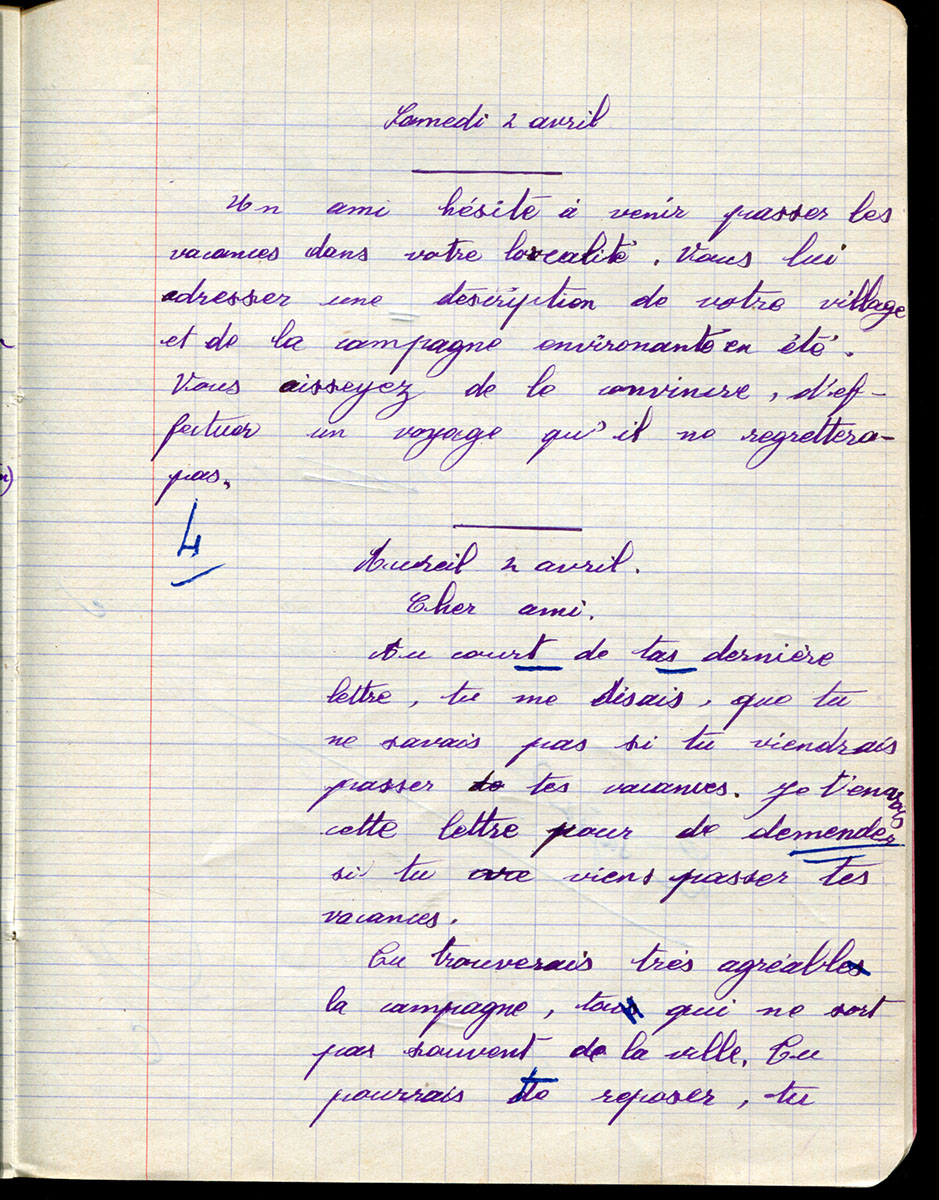 Samedi 2 avril
Un ami hésite à venir passer les
vacances dans votre localité. Vous lui
adresser une description de votre village
et de la campagne environante en été.
Vous aisseyez de le convincre, d'ef-
fectuer un voyage qu'il ne regrettera-
pas.
4
Aureil 2 avril.
Cher ami.
Au court de tas dernière
lettre, tu me disais, que tu
ne savais pas si tu viendrais
passer tes vacances. Je t'envoys
cette lettre pour de demender
si tu viens passer tes
vacances.
Tu trouverais très agréable
la campagne, toi qui ne sort
pas souvent de la ville. Tu
pourrais te reposer, tu